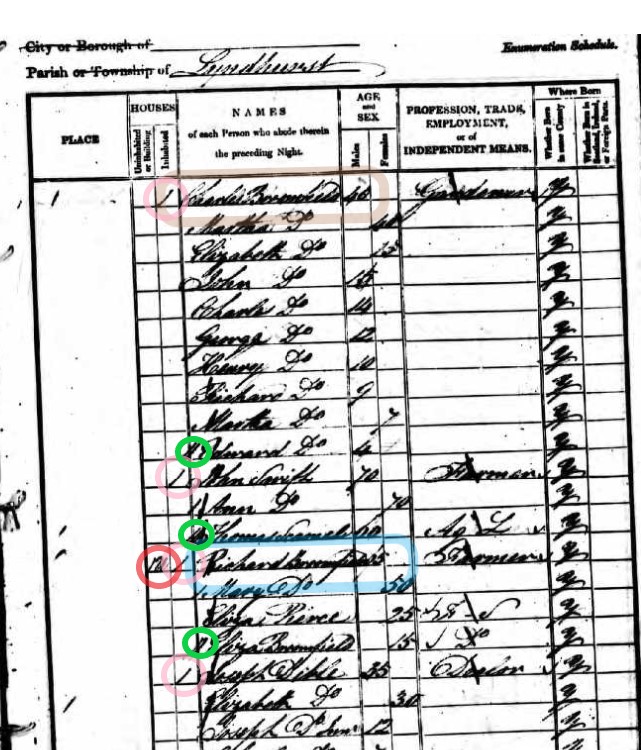 City or Borough of
Enumeration Schedule.
Parish or Township of Lyndhurst
PLACE
HOUSES
Uninhabited or Building
Inhabited
NAMES
of each Person who abode therein
the preceding Night.
AGE
and
SEX
Males
Females
PROFESSION, TRADE,
EMPLOYMENT,
or of
INDEPENDENT MEANS.
Where Born
Whether Born in same County
Whether Born in Scotland, Ireland, or Foreign Parts.
1 Charles Broomfield 40 y
Martha Do 40 y
Elizabeth Do 15 y
John Do 15 y
Charles Do 14 y
George Do 12 y
Henry Do 10 y
Richard Do 9 y
Martha Do 7 y
Edward Do 4 y
1 John Smith 70 Farmer y
Ann Do 70 y
Thomas 60 Ag L y
1 Richard Broomfield Farmer y
Mary Do 50 y
Eliza Pierce 25 y
Eliza Broomfield 15 Do y
1 Joseph 35 y
Elizabeth Do 30 y
Joseph Do 12 y